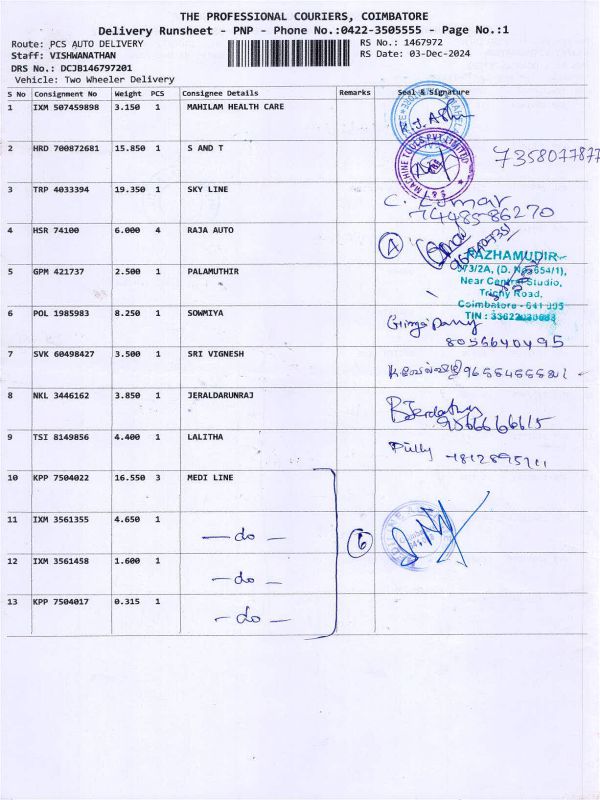 THE PROFESSIONAL COURIERS, COIMBATORE
Delivery Runsheet - PNP - Phone No.:0422-3505555 - Page No.:1
Route: PCS AUTO DELIVERY
Staff: VISHWANATHAN
DRS No.: DCJB146797201
Vehicle: Two Wheeler Delivery
RS No.: 1467972
RS Date: 03-Dec-2024
S No Consignment No Weight PCS Consignee Details Remarks Seal & Signature
1 IXM 507459898 3.150 1 MAHILAM HEALTH CARE
2 HRD 700872681 15.850 1 S AND T
MACHINE TOOLS PVT LIMITED
3 TRP 4033394 19.350 1 SKY LINE C. Kumar
7448586270
4 HSR 74100 6.000 4 RAJA AUTO 4
5 GPM 421737 2.500 1 PALAMUTHIR
PAZHAMUDIR
Near Central Studio,
Trichy Road,
6 POL 1985983 8.250 1 SOWMIYA
8056640495
7 SVK 60498427 3.500 1 SRI VIGNESH
8 NKL 3446162 3.850 1 JERALDARUNRAJ
9 TSI 8149856 4.400 1 LALITHA
10 KPP 7504022 16.550 3 MEDI LINE
11 IXM 3561355 4.650 1 - do - 6
12 IXM 3561458 1.600 1 - do -
13 KPP 7504017 0.315 1 - do -